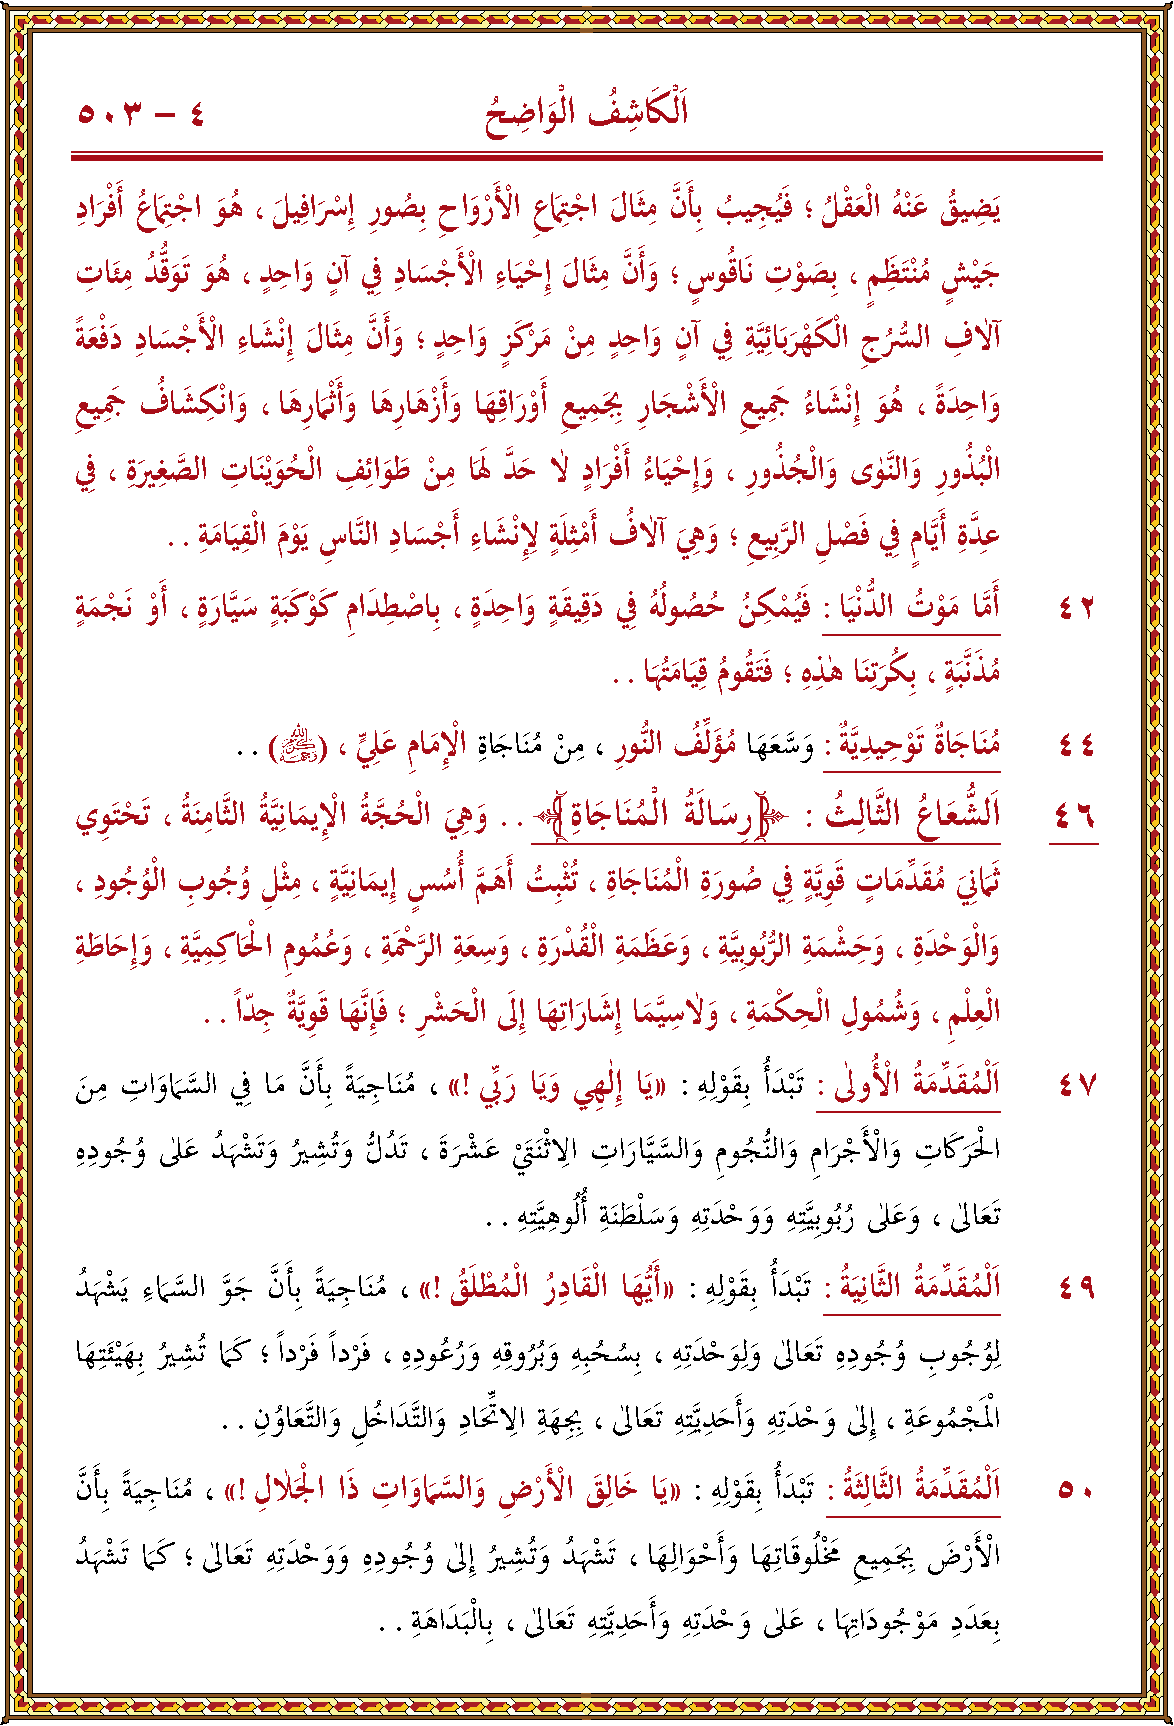 اَلْكَاشِفُ الْوَاضِحُ ٤ – ٥٠٣
يَضِيقُ عَنْهُ الْعَقْلُ ؛ فَيُجِيبُ بِأَنَّ مِثَالَ اجْتِمَاعِ الْأَرْوَاحِ بِصُورِ إِسْرَافِيلَ ، وَهُ اجْتِمَاعُ أَفْرَادِ
جَيْشٍ مُنْتَظِمٍ ، بِصَوْتِ نَاقُوسٍ ؛ وَأَنَّ مِثَالَ إِحْيَاءِ الْأَجْسَادِ فِي آنٍ وَاحِدٍ ، وَهُ تَوَقُّدُ مِئَاتِ
آلَافِ السُّرُجِ الْكَهْرَبَائِيَّةِ فِي آنٍ وَاحِدٍ مِنْ مَرْكَزٍ وَاحِدٍ ؛ وَأَنَّ مِثَالَ إِنْشَاءِ الْأَجْسَادِ دَفْعَةً
وَاحِدَةً ، وَهُ إِنْشَاءُ جَمِيعِ الْأَشْجَارِ بِجَمِيعِ أَوْرَاقِهَا وَأَزْهَارِهَا وَأَثْمَارِهَا ، وَانْكِشَافُ جَمِيعِ
الْبُذُورِ وَالنَّوٰى وَالْجُذُورِ ، وَإِحْيَاءُ أَفْرَادٍ لَا حَدَّ لَهَا مِنْ طَوَائِفِ الْحُوَيْنَاتِ الصَّغِيرَةِ ، فِي
عِدَّةِ أَيَّامٍ فِي فَصْلِ الرَّبِيعِ ؛ وَهِيَ آلَافُ أَمْثِلَةٍ لِإِنْشَاءِ أَجْسَادِ النَّاسِ يَوْمَ الْقِيَامَةِ . .
٤٢ أَمَّا مَوْتُ الدُّنْيَا : فَيُمْكِنُ حُصُولُهُ فِي دَقِيقَةٍ وَاحِدَةٍ ، بِاصْطِدَامِ كَوْكَبَةٍ سَيَّارَةٍ ، أَوْ نَجْمَةٍ
مُذَنَّبَةٍ ، بِكُرَتِنَا هٰذِهِ ؛ فَتَقُومُ قِيَامَتُهَا . .
٤٤ مُنَاجَاةٌ تَوْحِيدِيَّةٌ : وَسَّعَهَا مُؤَلِّفُ النُّورِ ، مِنْ مُنَاجَاةِ الْإِمَامِ عَلِيٍّ ، () . .
٤٦ اَلشُّعَاعُ الثَّالِثُ : ﴿رِسَالَةُ الْمُنَاجَاةِ﴾ . . وَهِيَ الْحُجَّةُ الْإِيمَانِيَّةُ الثَّامِنَةُ ، تَحْتَوِي
ثَمَانِيَ مُقَدِّمَاتٍ قَوِيَّةٍ فِي صُورَةِ الْمُنَاجَاةِ ، تُثْبِتُ أَهَمَّ أُسُسٍ إِيمَانِيَّةٍ ، مِثْلِ وُجُوبِ الْوُجُودِ ،
وَالْوَحْدَةِ ، وَحِشْمَةِ الرُّبُوبِيَّةِ ، وَعَظَمَةِ الْقُدْرَةِ ، وَسِعَةِ الرَّحْمَةِ ، وَعُمُومِ الْحَاكِمِيَّةِ ، وَإِحَاطَةِ
الْعِلْمِ ، وَشُمُولِ الْحِكْمَةِ ، وَلَاسِيَّمَا إِشَارَاتِهَا إِلَى الْحَشْرِ ؛ فَإِنَّهَا قَوِيَّةٌ جِدّاً . .
٤٧ اَلْمُقَدِّمَةُ الْأُولٰى : تَبْدَأُ بِقَوْلِهِ : «يَا إِلٰهِي وَيَا رَبِّي !» ، مُنَاجِيَةً بِأَنَّ مَا فِي السَّمَاوَاتِ مِنَ
الْحَرَكَاتِ وَالْأَجْرَامِ وَالنُّجُومِ وَالسَّيَّارَاتِ الِاثْنَتَيْ عَشْرَةَ ، تَدُلُّ وَتُشِيرُ وَتَشْهَدُ عَلٰى وُجُودِهِ
تَعَالٰى ، وَعَلٰى رُبُوبِيَّتِهِ وَوَحْدَتِهِ وَسَلْطَنَةِ أُلُوهِيَّتِهِ . .
٤٩ اَلْمُقَدِّمَةُ الثَّانِيَةُ : تَبْدَأُ بِقَوْلِهِ : «أَيُّهَا الْقَادِرُ الْمُطْلَقُ !» ، مُنَاجِيَةً بِأَنَّ جَوَّ السَّمَاءِ يَشْهَدُ
لِوُجُوبِ وُجُودِهِ تَعَالٰى وَلِوَحْدَتِهِ ، بِسُحُبِهِ وَبُرُوقِهِ وَرُعُودِهِ ، فَرْداً فَرْداً ؛ كَمَا تُشِيرُ بِهَيْئَتِهَا
الْمَجْمُوعَةِ ، إِلٰى وَحْدَتِهِ وَأَحَدِيَّتِهِ تَعَالٰى ، بِجِهَةِ الِاتِّحَادِ وَالتَّدَاخُلِ وَالتَّعَاوُنِ . .
٥٠ اَلْمُقَدِّمَةُ الثَّالِثَةُ : تَبْدَأُ بِقَوْلِهِ : «يَا خَالِقَ الْأَرْضِ وَالسَّمَاوَاتِ ذَا الْجَلَالِ !» ، مُنَاجِيَةً بِأَنَّ
الْأَرْضَ بِجَمِيعِ مَخْلُوقَاتِهَا وَأَحْوَالِهَا ، تَشْهَدُ وَتُشِيرُ إِلٰى وُجُودِهِ وَوَحْدَتِهِ تَعَالٰى ؛ كَمَا تَشْهَدُ
بِعَدَدِ مَوْجُودَاتِهَا ، عَلٰى وَحْدَتِهِ وَأَحَدِيَّتِهِ تَعَالٰى ، بِالْبَدَاهَةِ . .